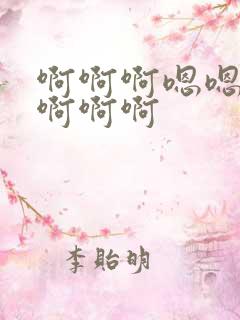 啊啊啊嗯嗯
啊啊啊
李贻明